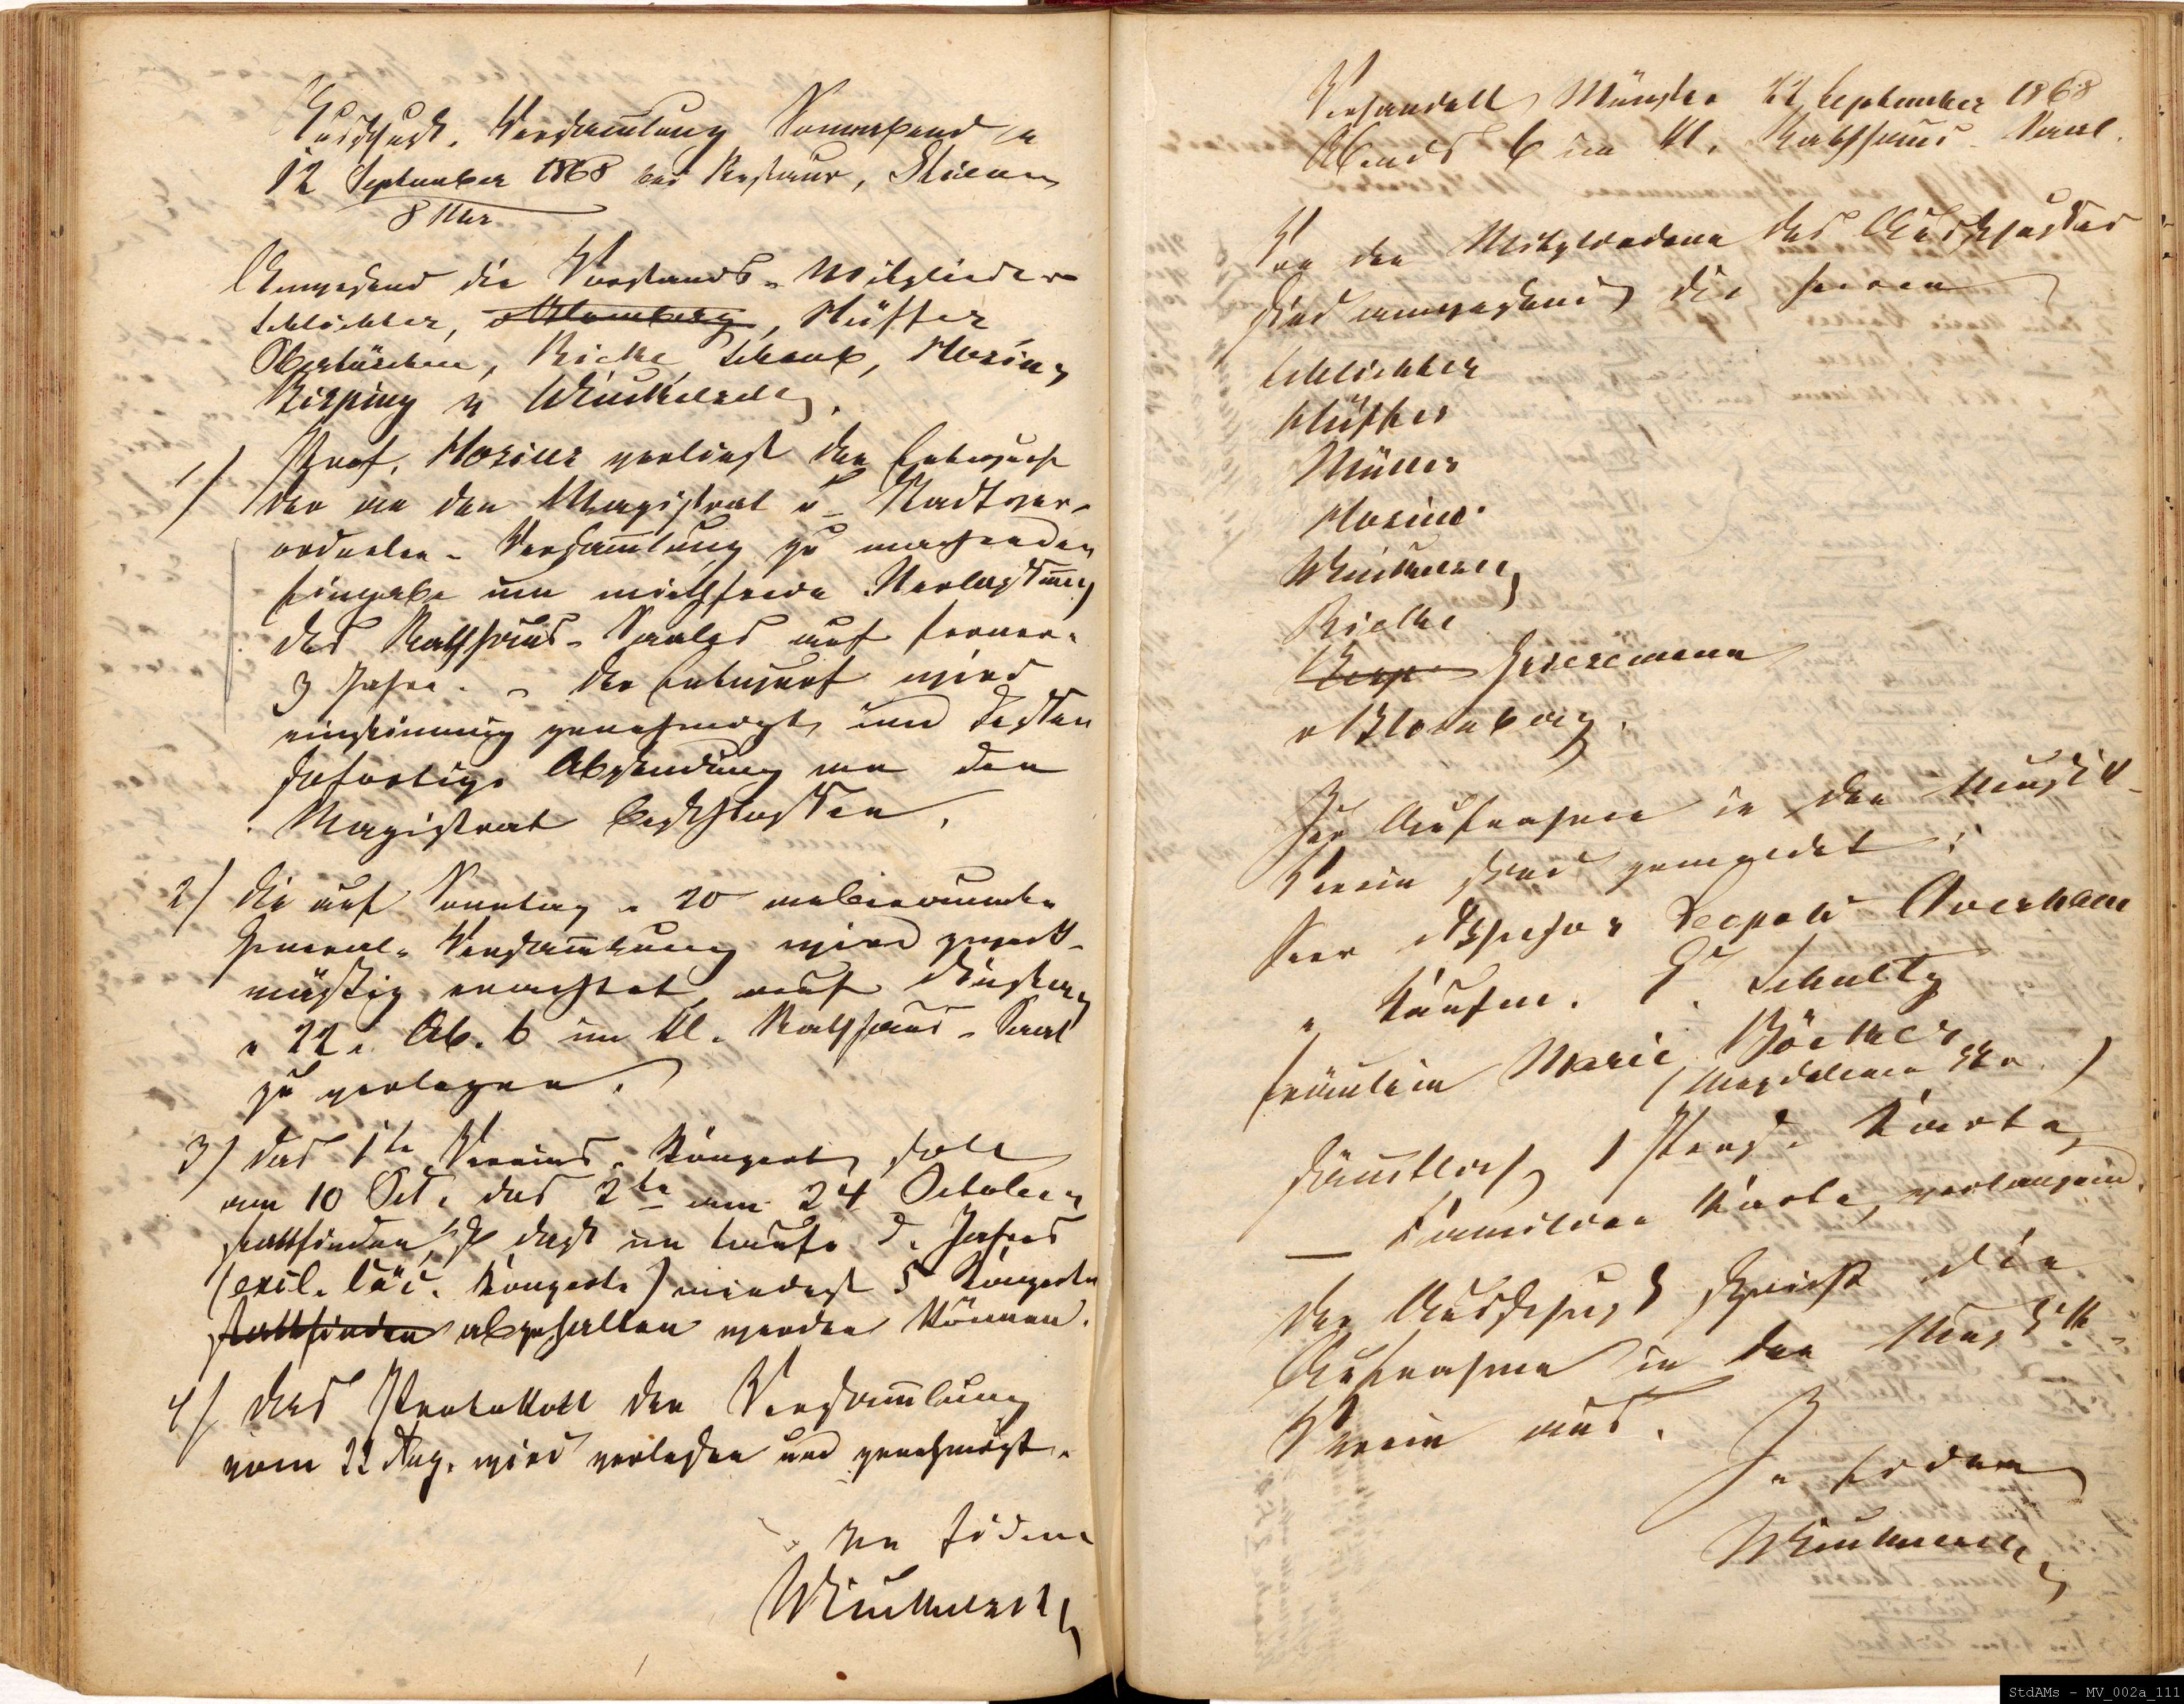 Ausschuß-Versammlung Sonnabend d
12 September 1868 bei Restaur. Stienen
8 Uhr
Anwesend die Vorstands-Mitglieder
Schlichter, v Blomberg, Hüffer
Ricke, Schaub, Hosius,
Bisping u Winkelsett.
1) Prof. Hosius verliest den Entwurf
der an den Magistrat u Stadtver-
ordneten-Versammlung zu machenden
Eingabe um miethfreie Überlassung
des Rathhaus-Saales auf fernere
3 Jahre. - Der Entwurf wird
einstimmig genehmigt und dessen
sofortige Absendung an den
Magistrat beschlossen.
2) Die auf Sonntag d 20 anberaumte
General-Versammlung wird zweck-
mäßig erachtet, auf Dienstag
d 22. Ab. 6 im kl. Rathhaus-Saal
zu verlegen.
3) Das 1te Vereins-Konzert soll
am 10 Oct. das 2te am 24 October
stattfinden, so daß im Laufe d. Jahres
(excl. Cäc. Konzerte) mindest 5 Konzerte
stattfinden abgehalten werden können.
4) Das Protokoll der Versammlung
vom 22 Aug. wird verlesen und genehmigt.
In fidem
Verhandelt Münster 22 September 1868
Abends 6 im kl. Rathhaus-Saal.
Von den Mitgliedern des Ausschusses
sind anwesend die Herren
Schlichter
Hüffer
Müller
Hosius
Ricke
v Blomberg.
Zur Aufnahme in den Musik-
Verein sind gemeldet:
Herr Assessor Leopold Overham
" Kaufm. Schultz
Fräulein Marie Böcker
(Magdalenen Str.)
sämmtlich 1 Pers. Karte,
— Familien Karte, verlangend.
Der Ausschuß spricht die
Aufnahme in den Musik-
Verein aus.
In fidem